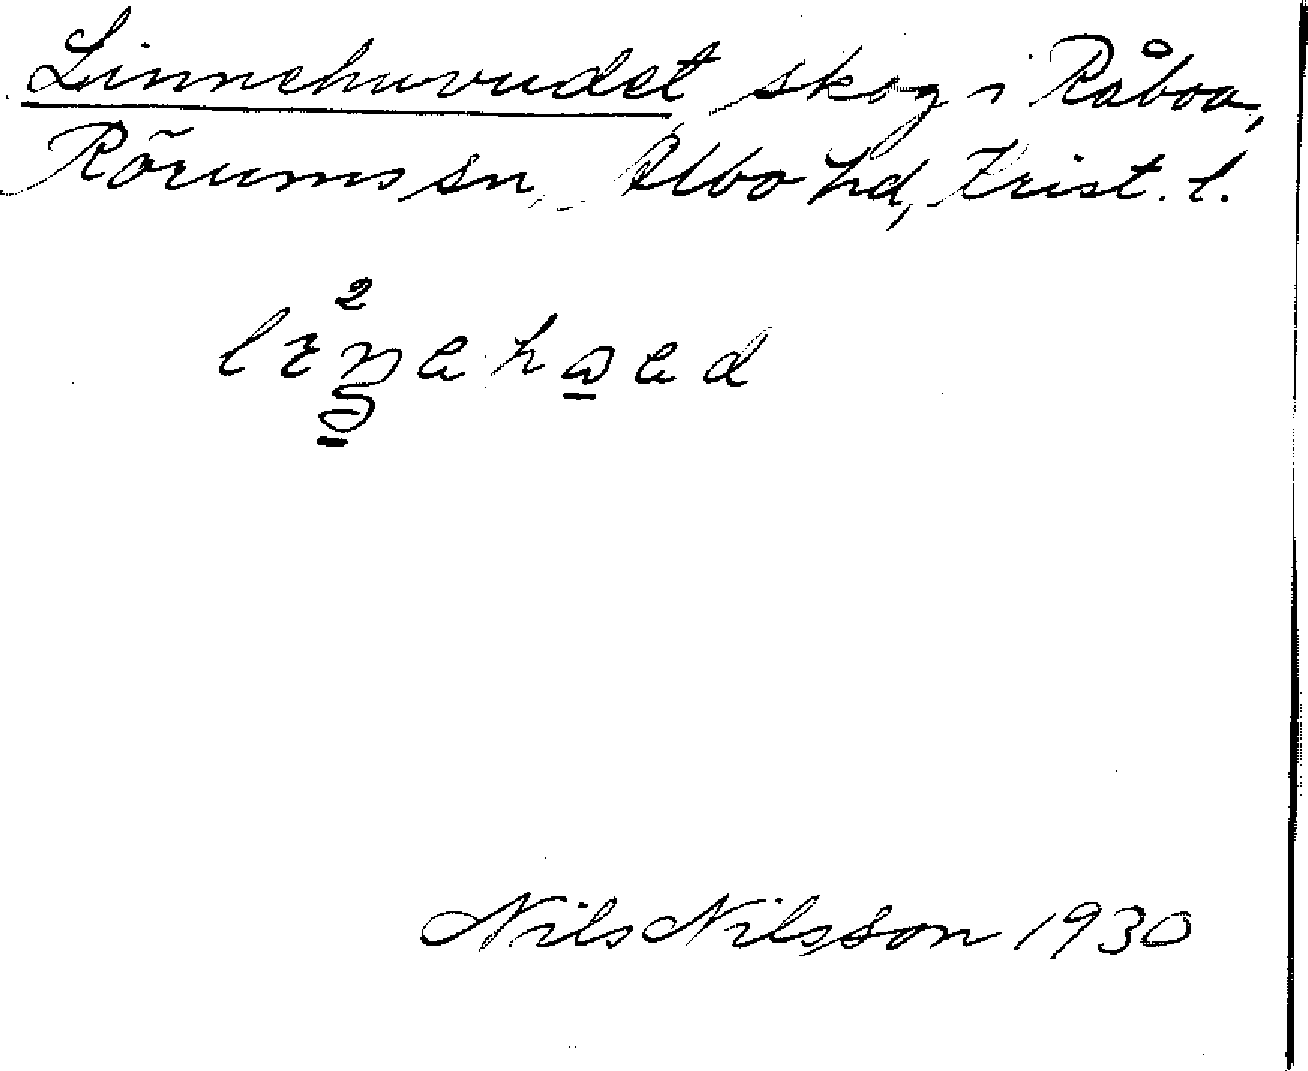 Linnehuvudet, skog i Råboa,
Rörums sn, Albo hd, Krist. l.
Nils Nilsson 1930